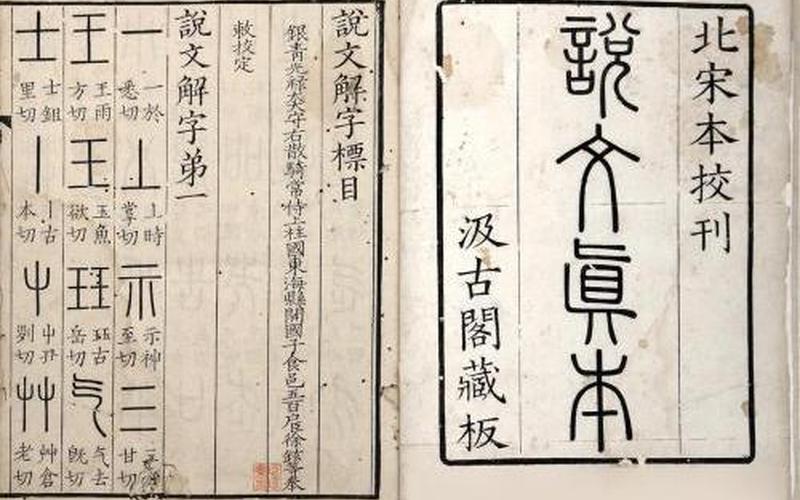 北宋本挍刊
說文眞本
汲古閣藏板
說文解字標目
銀青光祿大夫守右散騎常侍上柱國東海縣開國子食邑五百戶臣徐鉉等奉
敕挍定
說文解字弟一
一 一於悉切 丄 丄時掌切 示 示神至切 三 甘切
王 王雨方切 王 玉魚欲切 玨 珏古岳切 气 气去旣切
士 士鉏里切 丨 丨古本切 屮 屮丑列切 艸 艸倉老切